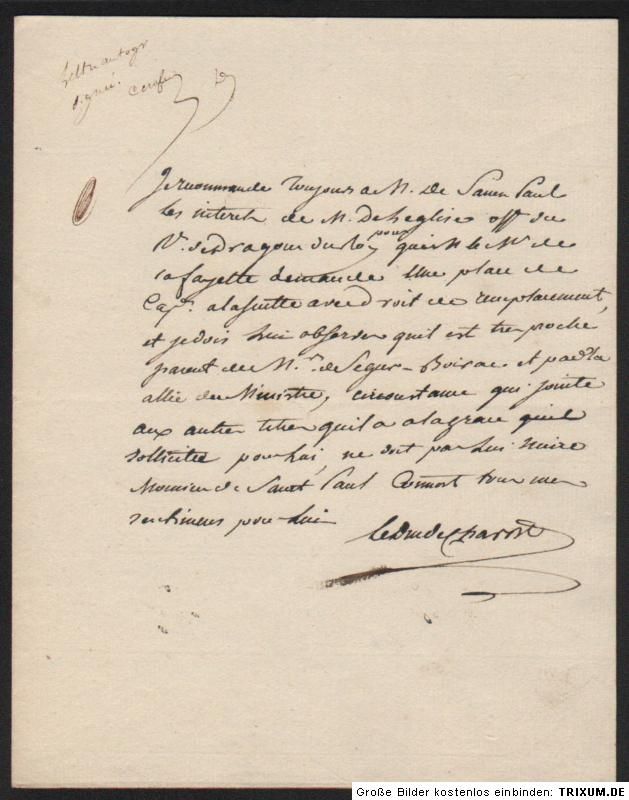 Lettre autogr
signée.
Je recommande toujours a M. De Saint Paul
les interets de M. Deheglise off. du
R. de Dragons du Roy pour qui M. le Mis de
Lafayette demande une place de
Capne. a la suitte avec droit de remplacement,
et je dois lui observer qu'il est tres proche
parent de Mr. de Segur-Boirac et par la
allié du Ministre, circonstance qui jointe
aux autres titres qu'il a a la grace qu'il
sollicitte pour lui, ne doit pas lui nuire
Monsieur de Saint Paul Connoit tous mes
sentimens pour lui